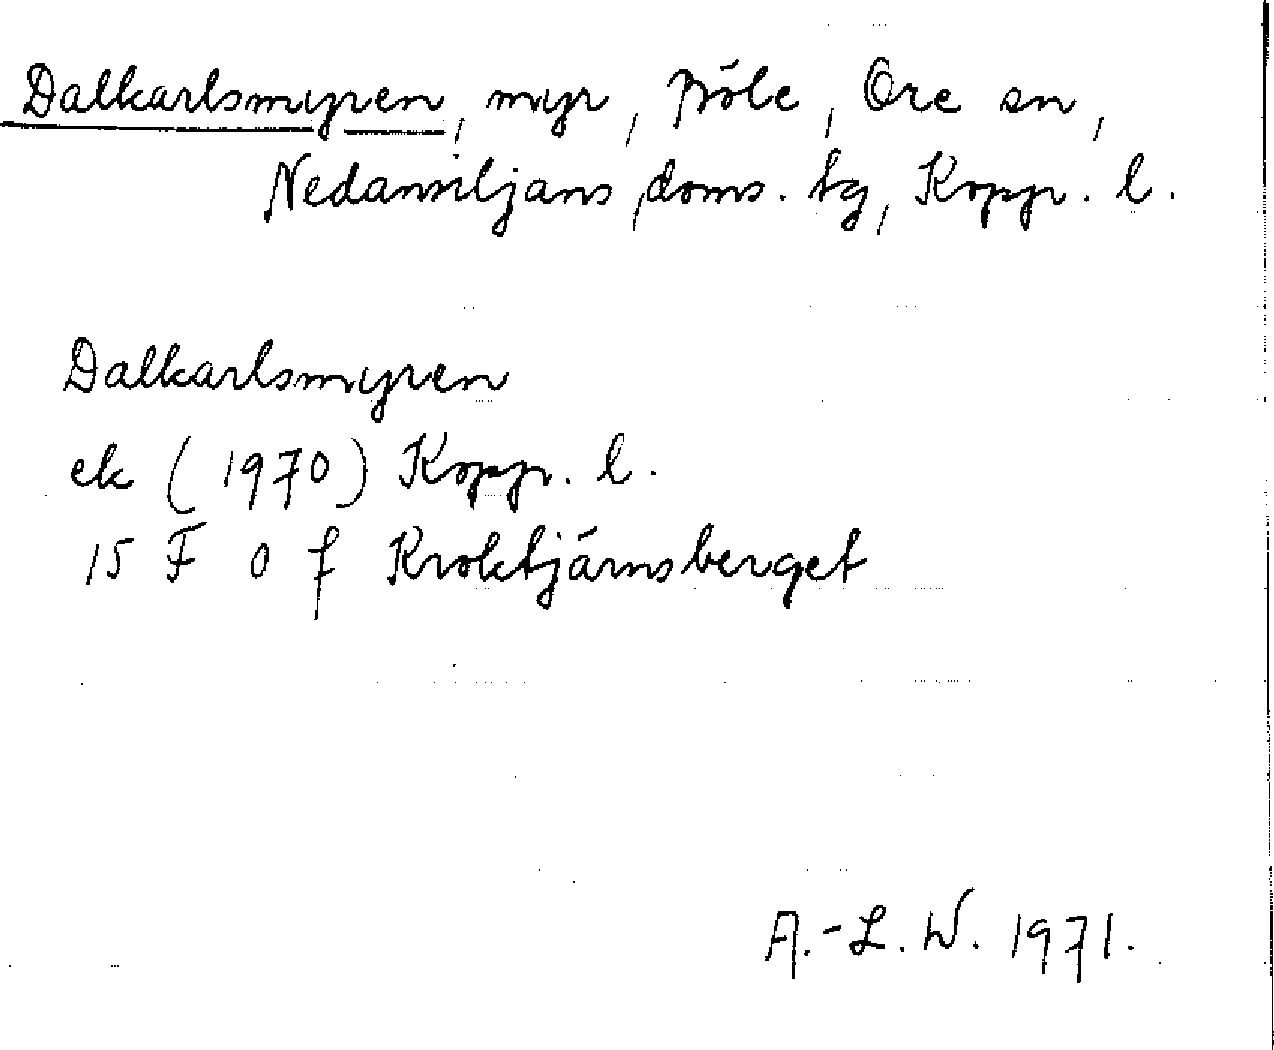 Dalkarlsmyren, myr, Pröle, Ore sn,
Nedansiljans doms. tg, Kopp. l.
Dalkarlsmyren
ek (1970) Kopp. l.
15 F o f Kroktjärnsberget
A.-L. W. 1971.